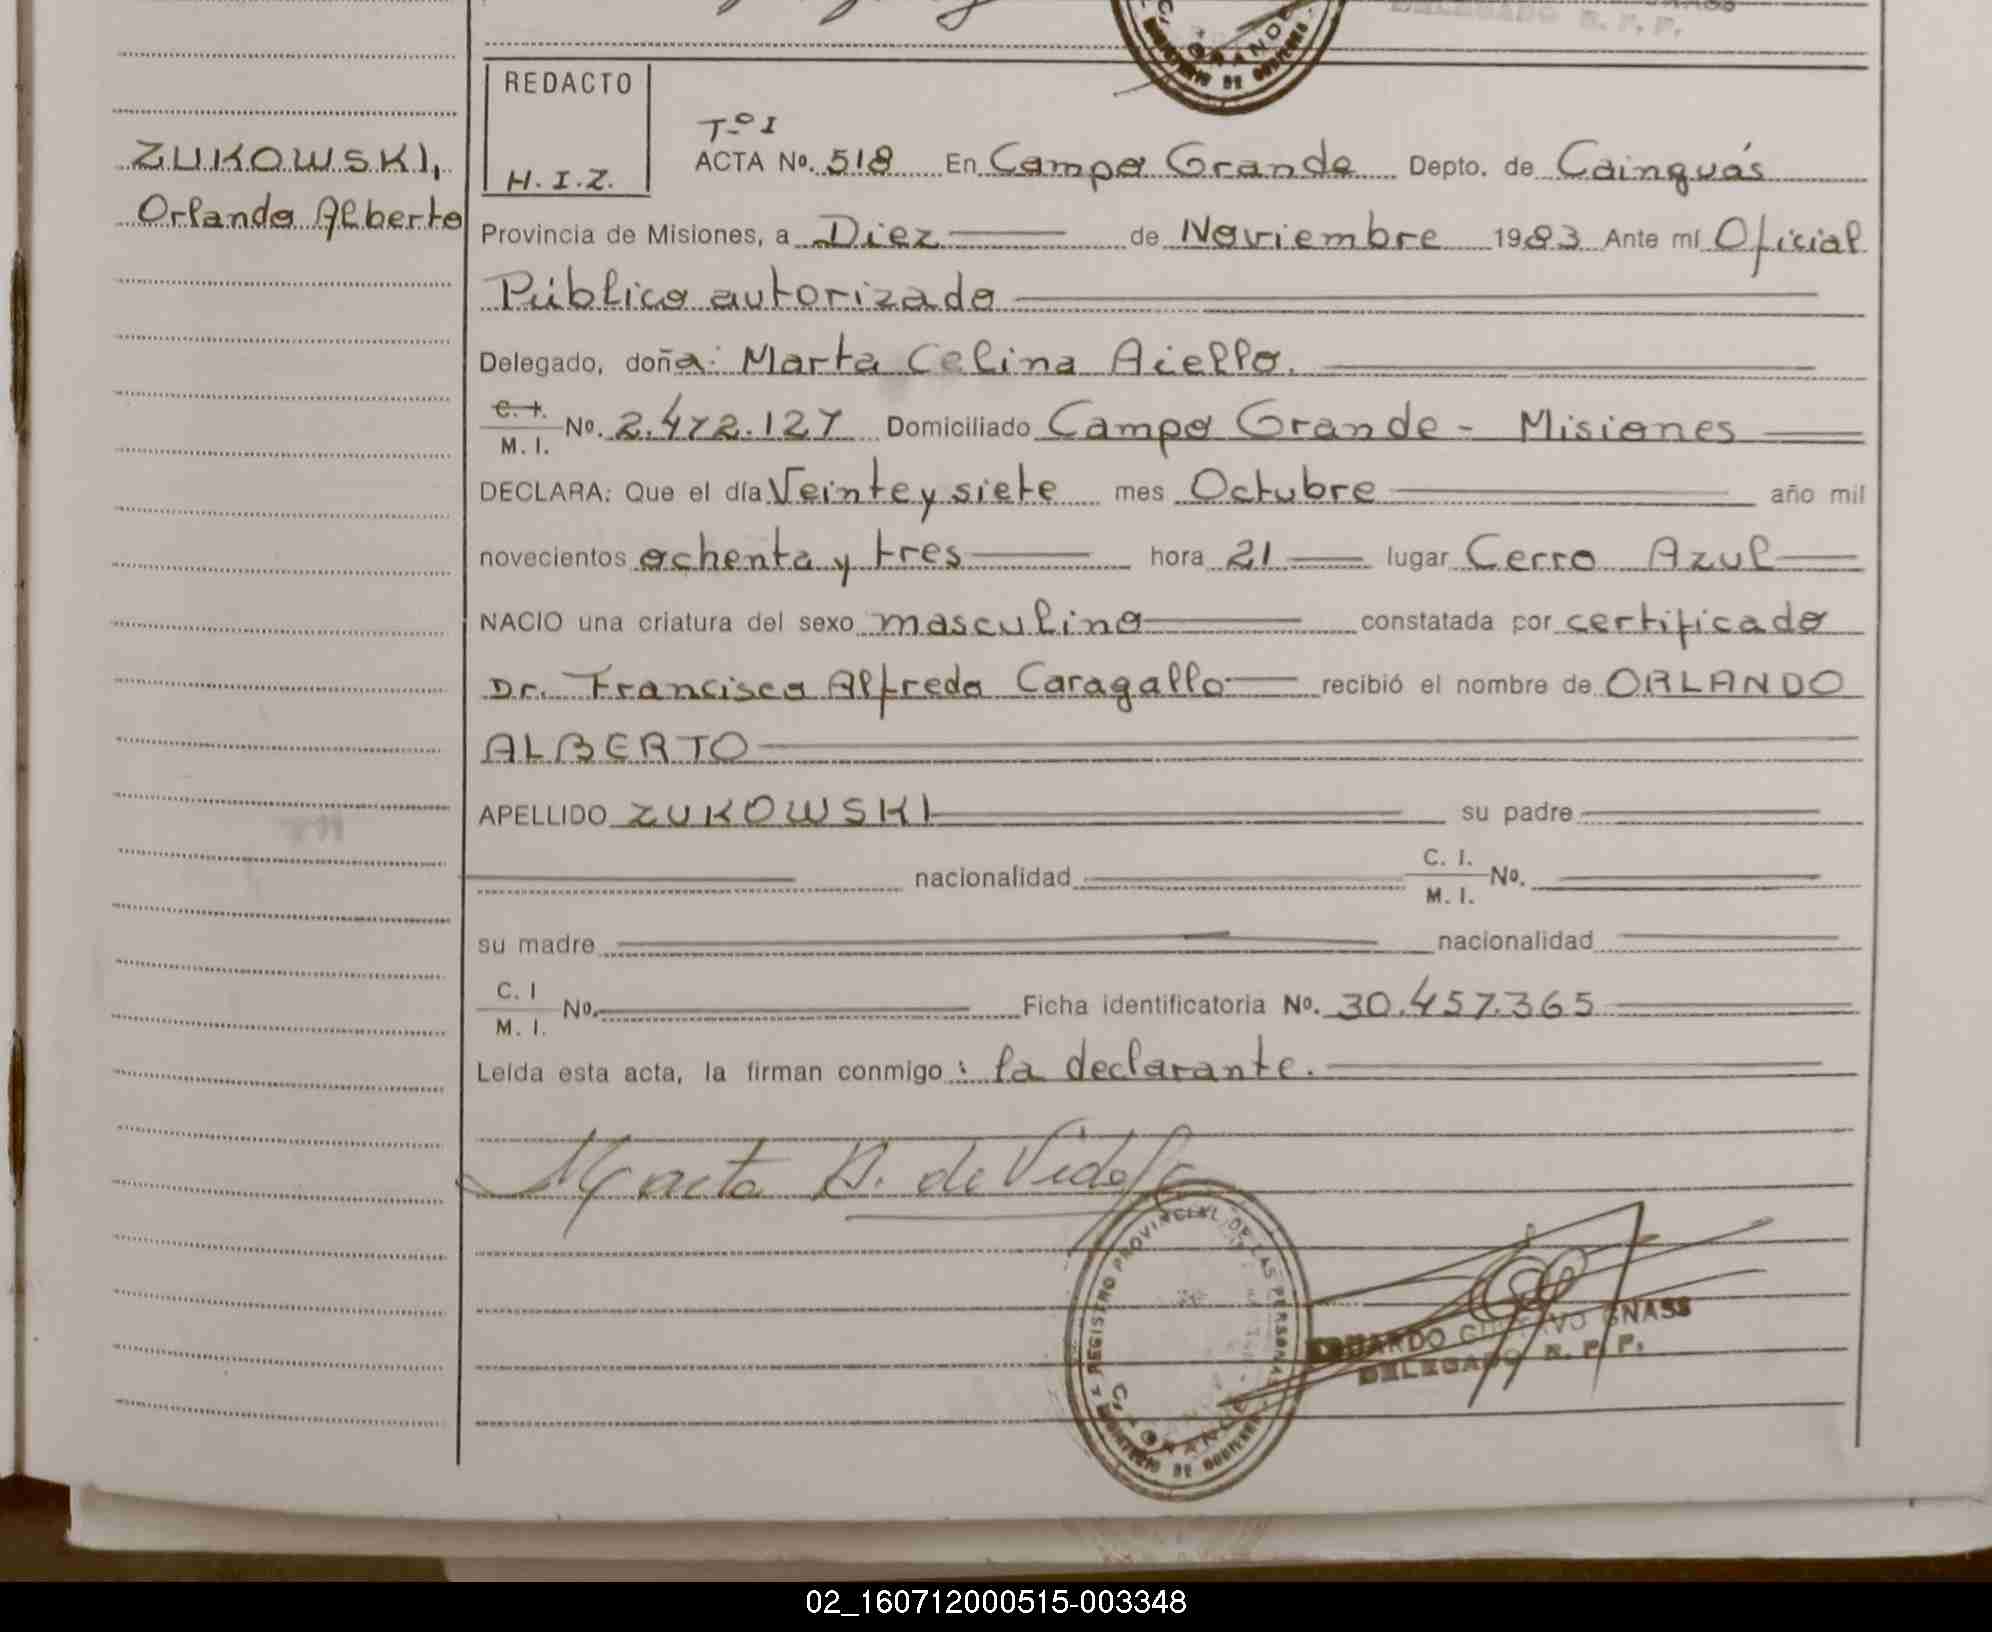 DELEGADO R. P. P.
C. GRANDE
MINISTERIO DE GOBIERNO
REDACTO
H. I. Z.
ZUKOWSKI,
Orlando Alberto
Tº I
ACTA Nº. 518 En Campo Grande Depto. de Cainguás
Provincia de Misiones, a Diez de Noviembre 1983 Ante mí Oficial
Público autorizado
Delegado, doña: Marta Celina Aiello.
C. I.
M. I. Nº. 2.472.127 Domiciliado Campo Grande - Misiones
DECLARA: Que el día Veinte y siete mes Octubre año mil
novecientos ochenta y tres hora 21 lugar Cerro Azul
NACIO una criatura del sexo masculino constatada por certificado
Dr. Francisco Alfredo Caragallo recibió el nombre de ORLANDO
ALBERTO
APELLIDO ZUKOWSKI su padre
nacionalidad C. I. M. I. Nº.
su madre nacionalidad
C. I M. I. Nº. Ficha identificatoria Nº. 30.457.365
Leída esta acta, la firman conmigo: la declarante.
Marta A. de Vidal
REGISTRO PROVINCIAL DE LAS PERSONAS
C. GRANDE
MINISTERIO DE GOBIERNO
EDUARDO GUSTAVO GNASS
DELEGADO R. P. P.
02_160712000515-003348